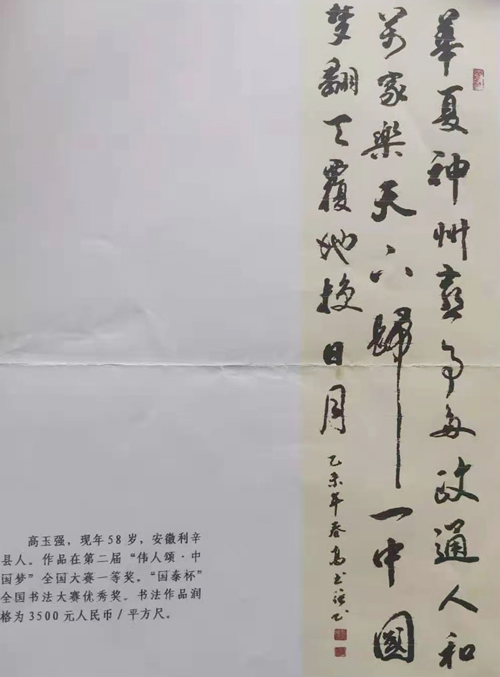 華夏神州喜事多政通人和
萬家樂天下歸一中國
夢翻天覆地換日月
乙未年春高玉强书
高玉强，现年58岁，安徽利辛
县人。作品在第二届“伟人颂·中
国梦”全国大赛一等奖。“国泰杯”
全国书法大赛优秀奖。书法作品润
格为3500元人民币/平方尺。